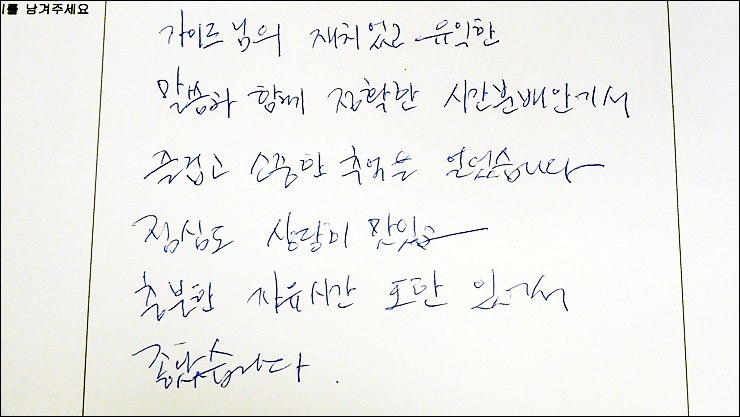 를 남겨주세요
가이드님의 재치있고 유익한
말씀과 함께 정확한 시간분배안에서
즐겁고 소중한 추억을 얻었습니다
점심도 상당히 맛있고
충분한 자유시간 또한 있어서
좋았습니다.